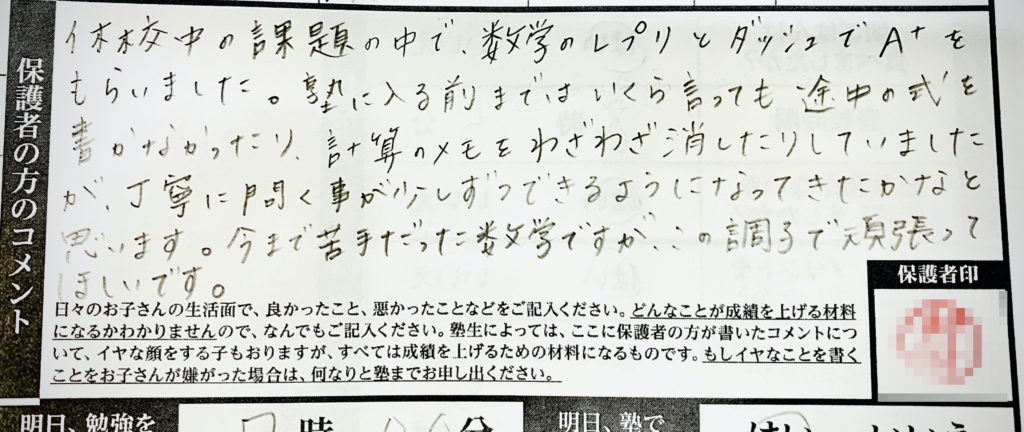 保護者の方のコメント
休校中の課題の中で、数学のレプリとダッシュでA+を
もらいました。塾に入る前まではいくら言っても途中の式を
書かなかったり、計算のメモをわざわざ消したりしていました
が、丁寧に問く事が少しずつできるようになってきたかなと
思います。今まで苦手だった数学ですが、この調子で頑張って
ほしいです。
保護者印
日々のお子さんの生活面で、良かったこと、悪かったことなどをご記入ください。どんなことが成績を上げる材料
になるかわかりませんので、なんでもご記入ください。塾生によっては、ここに保護者の方が書いたコメントにつ
いて、イヤな顔をする子もおりますが、すべては成績を上げるための材料になるものです。もしイヤなことを書く
ことをお子さんが嫌がった場合は、何なりと塾までお申し出ください。
明日、勉強を
時
分
明日、塾で